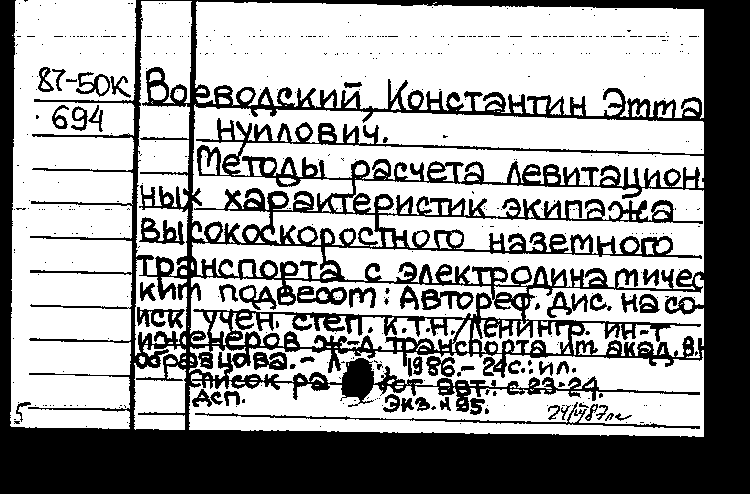 87-50к Воеводский, Константин Эмма
694 нуилович.
Методы расчета левитацион-
ных характеристик экипажа
высокоскоростного наземного
транспорта с электродинамичес
ким подвесом: Автореф. дис. на со-
иск. учен. степ. к.т.н./Ленингр. ин-т
инженеров ж-д. транспорта им. акад. В.Н
образцова. - Л , 1986. - 24с.: ил.
Список ра от авт.: с.23-24.
Дсп. Экз. н 95.
5